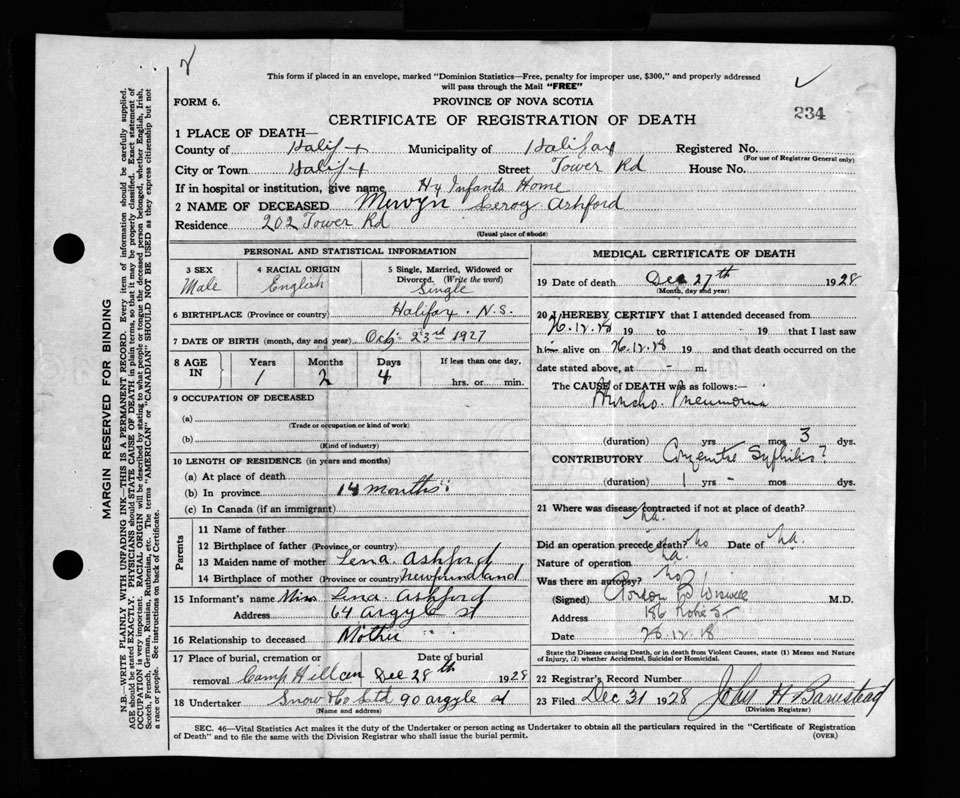 This form if placed in an envelope, marked "Dominion Statistics—Free, penalty for improper use, $300," and properly addressed
will pass through the Mail "FREE"
FORM 6.
PROVINCE OF NOVA SCOTIA
234
CERTIFICATE OF REGISTRATION OF DEATH
1 PLACE OF DEATH—
County of Halifx Municipality of Halifax Registered No.
(For use of Registrar General only)
City or Town Halifx Street Tower Rd House No.
If in hospital or institution, give name Hx Infants Home
2 NAME OF DECEASED Mervyn Leroy Ashford
Residence 202 Tower Rd
(Usual place of abode)
MARGIN RESERVED FOR BINDING
N.B.—WRITE PLAINLY WITH UNFADING INK—THIS IS A PERMANENT RECORD. Every item of information should be carefully supplied.
AGE should be stated EXACTLY. PHYSICIANS should STATE CAUSE OF DEATH in plain terms, so that it may be properly classified. Exact statement of
OCCUPATION is very important. RACIAL ORIGIN will be described by stating to what people or tongue the deceased person belonged, whether English, Irish,
Scotch, French, German, Russian, Ruthenian, etc. The terms "AMERICAN" or "CANADIAN" SHOULD NOT BE USED as they express citizenship but not
a race or people. See instructions on back of Certificate.
PERSONAL AND STATISTICAL INFORMATION
3 SEX
Male
4 RACIAL ORIGIN
English
5 Single, Married, Widowed or
Divorced. (Write the word)
Single
6 BIRTHPLACE (Province or country) Halifax. N.S.
7 DATE OF BIRTH (month, day and year) Oct 23rd 1927
8 AGE IN
Years Months Days If less than one day,
1 2 4 hrs. or min.
9 OCCUPATION OF DECEASED
(a)
(Trade or occupation or kind of work)
(b)
(Kind of industry)
10 LENGTH OF RESIDENCE (in years and months)
(a) At place of death
(b) In province 14 months
(c) In Canada (if an immigrant)
Parents
11 Name of father
12 Birthplace of father (Province or country)
13 Maiden name of mother Lena Ashford
14 Birthplace of mother (Province or country) Newfoundland
15 Informant's name Miss Lena Ashford
Address 64 Argyle st
16 Relationship to deceased Mother
17 Place of burial, cremation or
removal Camp Hill cem
Date of burial
Dec 28th 1928
18 Undertaker Snow & Co Ltd 90 argyle st
(Name and address)
MEDICAL CERTIFICATE OF DEATH
19 Date of death Dec 27th 1928
(Month, day and year)
20 I HEREBY CERTIFY that I attended deceased from
26.12.28 19 to - 19 that I last saw
him alive on 26.12.28 19 and that death occurred on the
date stated above, at - m.
The CAUSE of DEATH was as follows:—
Broncho. Pneumonia
(duration) yrs mos 3 dys.
CONTRIBUTORY Congenital Syphilis?
(duration) 1 yrs - mos. dys.
21 Where was disease contracted if not at place of death?
na.
Did an operation precede death? no Date of na.
Nature of operation na.
Was there an autopsy? no
(Signed) Gordon B Wiswell M.D.
Address 186 Robie St
Date 28.12.28
State the Disease causing Death, or in death from Violent Causes, state (1) Means and Nature
of Injury, (2) whether Accidental, Suicidal or Homicidal.
22 Registrar's Record Number
23 Filed Dec 31 1928 John H Barnstead
(Division Registrar)
SEC. 46—Vital Statistics Act makes it the duty of the Undertaker or person acting as Undertaker to obtain all the particulars required in the "Certificate of Registration
of Death" and to file the same with the Division Registrar who shall issue the burial permit.
(OVER)